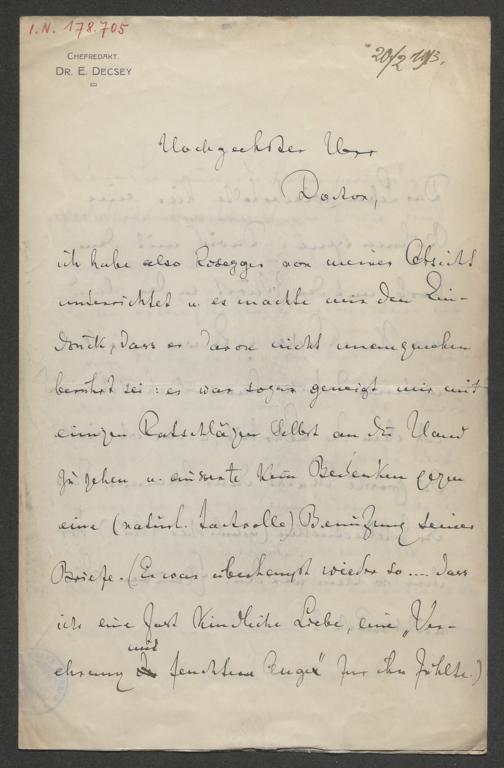 I.N. 178.705
CHEFREDAKT.
DR. E. DECSEY
20/2 1913.
Hochgeehrter Herr
Doctor,
ich habe also Rosegger von meiner Absicht
unterrichtet u. es machte mir den Ein-
druck, dass er davon nicht unangenehm
berührt sei: er war sogar geneigt mir mit
einigen Ratschlägen selbst an die Hand
zu gehen u. äusserte kein Bedenken gegen
eine (natürl. tactvolle) Benützung seiner
Briefe. (Er war überhaupt wieder so .... dass
ich eine fast kindliche Liebe, eine „Ver-
ehrung mit feuchten Augen“ für ihn fühlte.)